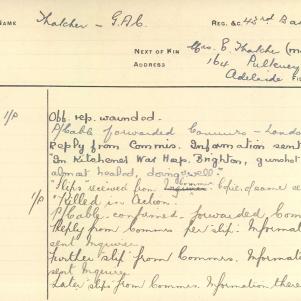 NAME Thatcher - G.A.C. REG. &C. 43rd Ba
NEXT OF KIN Mrs. E Thatcher (mo
ADDRESS 164 Pulteney
Adelaide
1/P Off. rep. wounded.
P/Cable forwarded Commrs - London
Reply from Commrs. Information sent
"In Kitchener War Hosp. Brighton, gunshot
almost healed, doing well."
Slips received from Commrs. Copies of same
1/P "Killed in Action"
P/Cable - confirmed. forwarded Com
Reply from Commrs per slip. Informati
sent Inquirer
Further slip from Commrs. Informatio
sent Inquiry
Later slips from Commrs. Information there